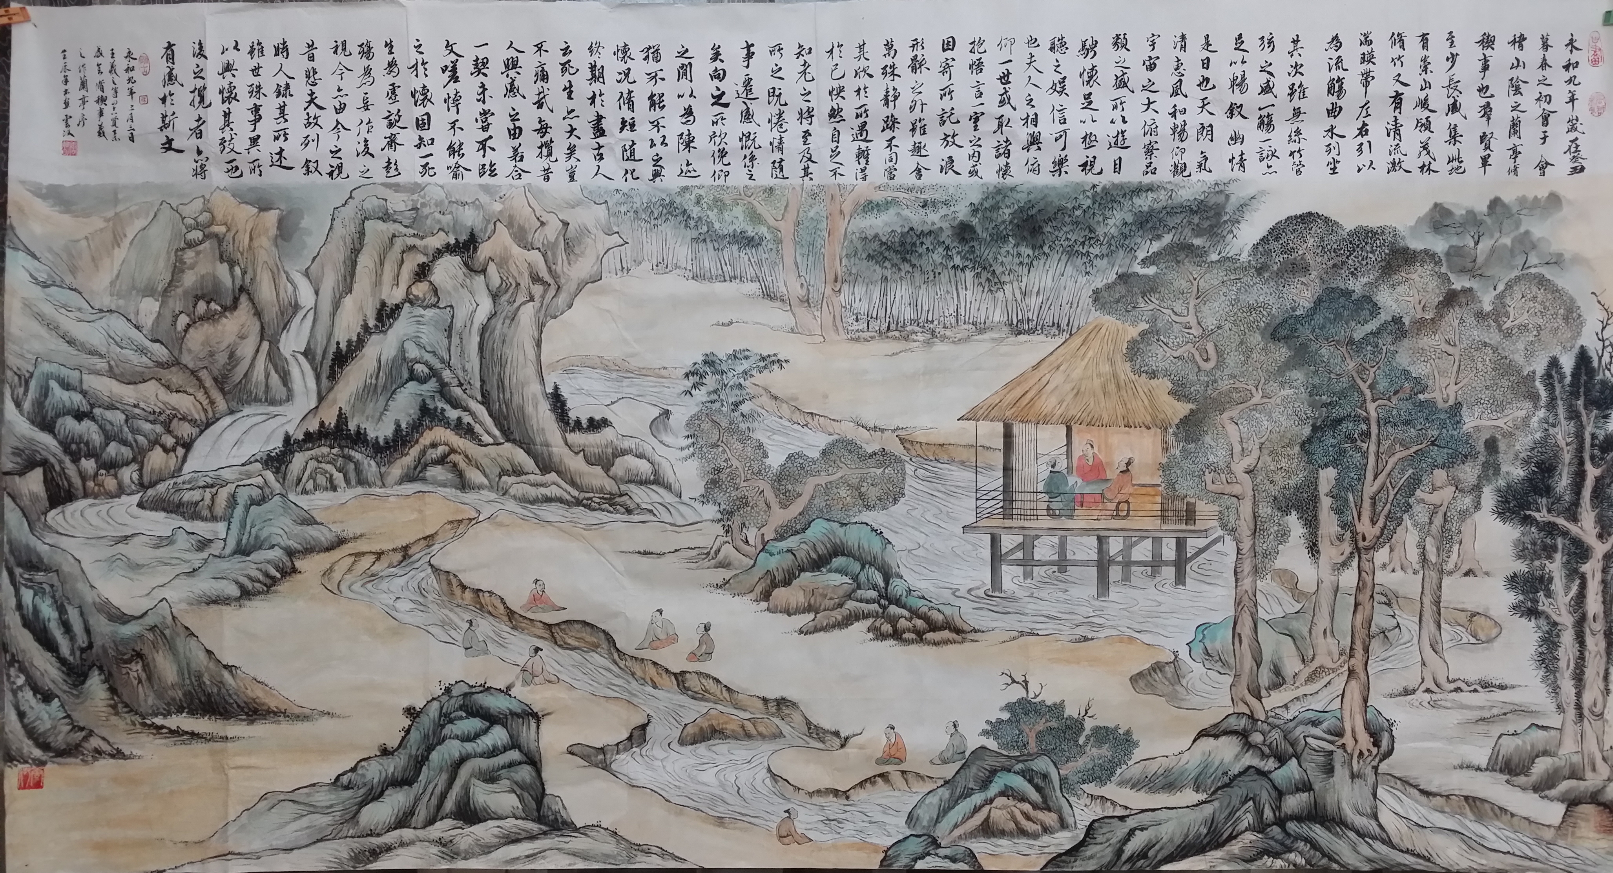 永和九年歲在癸丑
暮春之初會于會
稽山陰之蘭亭脩
禊事也羣賢畢
至少長咸集此地
有崇山峻領茂林
脩竹又有清流激
湍暎帶左右引以
為流觴曲水列坐
其次雖無絲竹管
弦之盛一觴一詠亦
足以暢叙幽情
是日也天朗氣
清惠風和暢仰觀
宇宙之大俯察品
類之盛所以遊目
騁懷足以極視
聽之娛信可樂
也夫人之相與俯
仰一世或取諸懷
抱悟言一室之内或
因寄所託放浪
形骸之外雖趣舍
萬殊靜躁不同當
其欣於所遇暫得
於己怏然自足不
知老之將至及其
所之既惓情隨
事遷感慨係之
矣向之所欣俛仰
之間以為陳迹
猶不能不以之興
懷況脩短隨化
終期於盡古人
云死生亦大矣豈
不痛哉每攬昔
人興感之由若合
一契未嘗不臨
文嗟悼不能喻
之於懷固知一死
生為虛誕齊彭
殤為妄作後之
視今亦由今之視
昔悲夫故列叙
時人錄其所述
雖世殊事異所
以興懷其致一也
後之攬者亦將
有感於斯文
永和九年三月三日
王羲之等
脩禊事羲
之作蘭亭序
壬辰